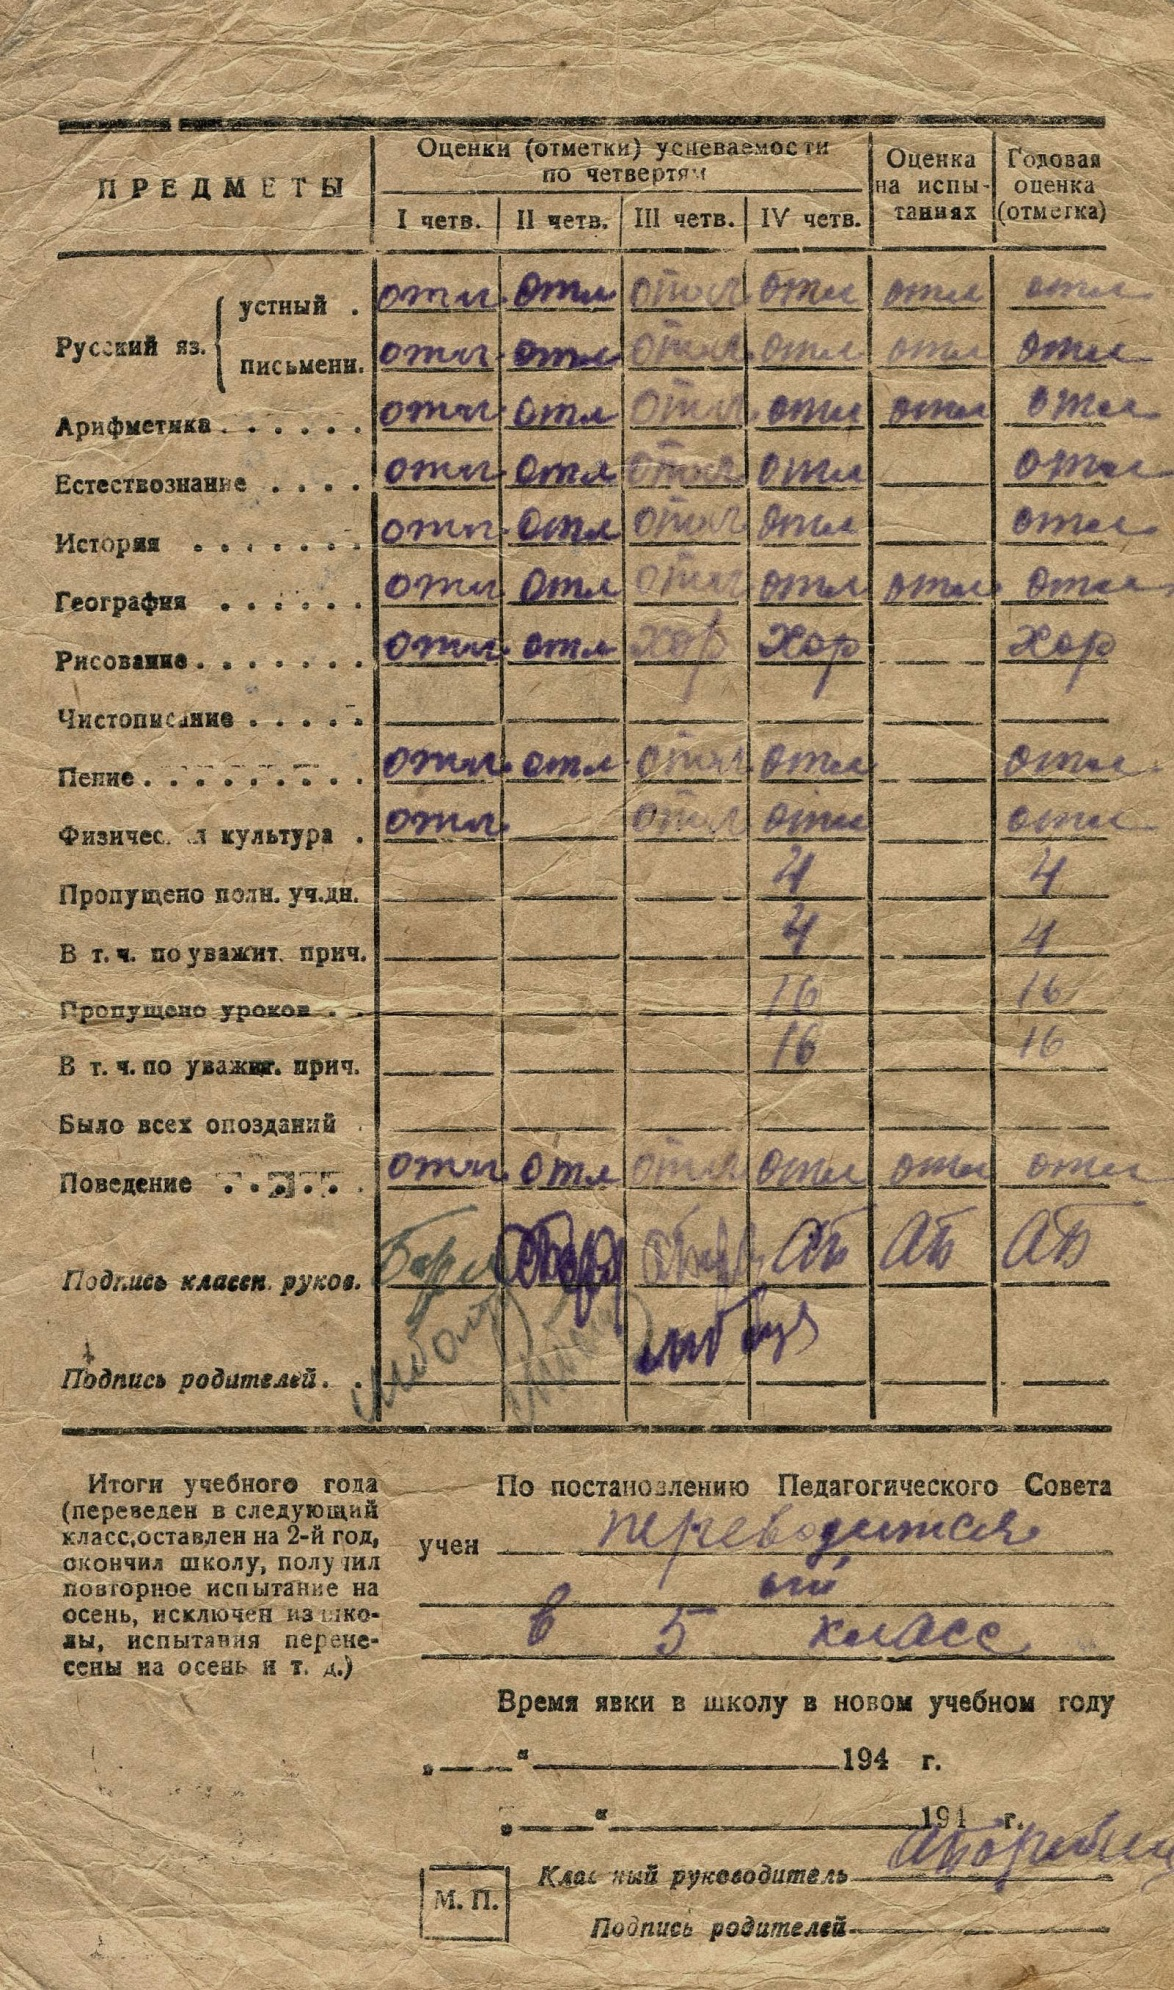 ПРЕДМЕТЫ Оценки (отметки) успеваемости по четвертям Оценка на испытаниях Годовая оценка (отметка)
I четв. II четв. III четв. IV четв.
Русский яз. устный . отл. отл отл отл отл отл
письменн. отл. отл отл. отл отл отл
Арифметика . . . . . . отл отл отл отл отл отл
Естествознание . . . . отл. отл отл отл отл
История . . . . . . . отл. отл отл отл отл
География . . . . . . отл отл отл отл отл отл
Рисование . . . . . . . отл. отл хор хор хор
Чистописание . . . . .
Пение . . . . . . . . . отл. отл отл. отл отл
Физическая культура . отл отл отл отл
Пропущено полн. уч.дн. 4 4
В т. ч. по уважит. прич. 4 4
Пропущено уроков . . 16 16
В т. ч. по уважит. прич. 16 16
Было всех опозданий .
Поведение . . . . . . отл. отл отл отл отл отл
Подпись классн. руков. АБ АБ АБ
Подпись родителей. .
Итоги учебного года
(переведен в следующий
класс, оставлен на 2-й год,
окончил школу, получил
повторное испытание на
осень, исключен из шко-
лы, испытания перене-
сены на осень и т. д.)
По постановлению Педагогического Совета
учен переводится
ый
в 5 класс
Время явки в школу в новом учебном году
„ “ 194 г.
„ “ 194 г.
Классный руководитель
М. П.
Подпись родителей